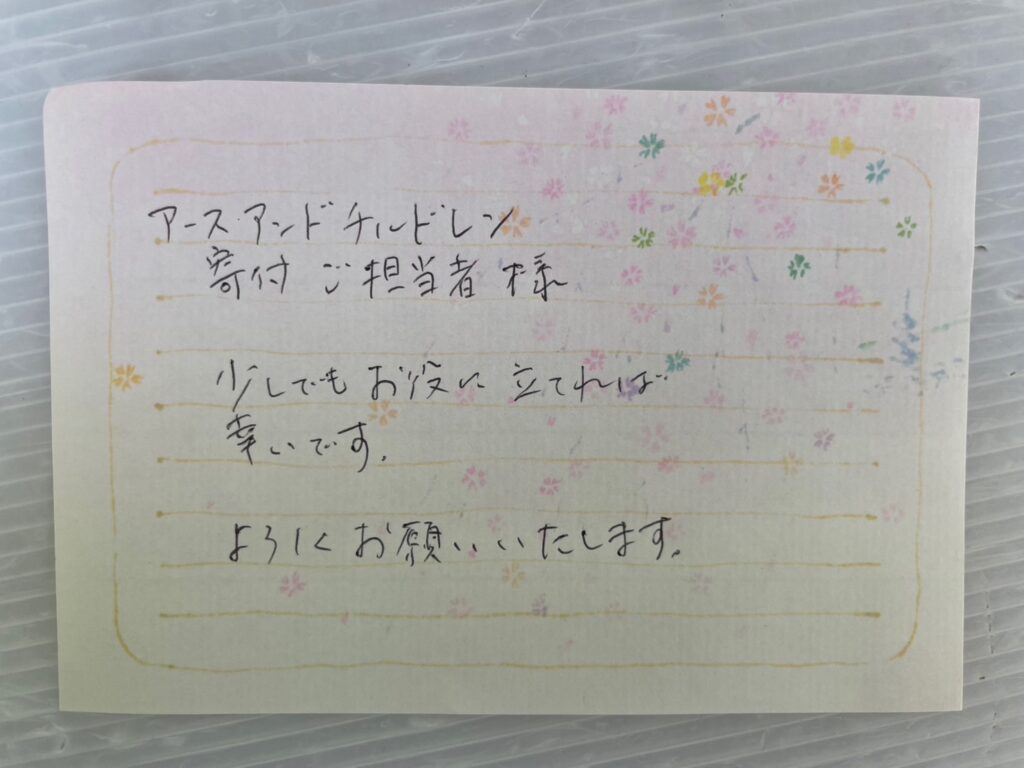 アース・アンドチルドレン
寄付 ご担当者 様
少しでも お役に 立てれば
幸いです。
よろしく お願いいたします。